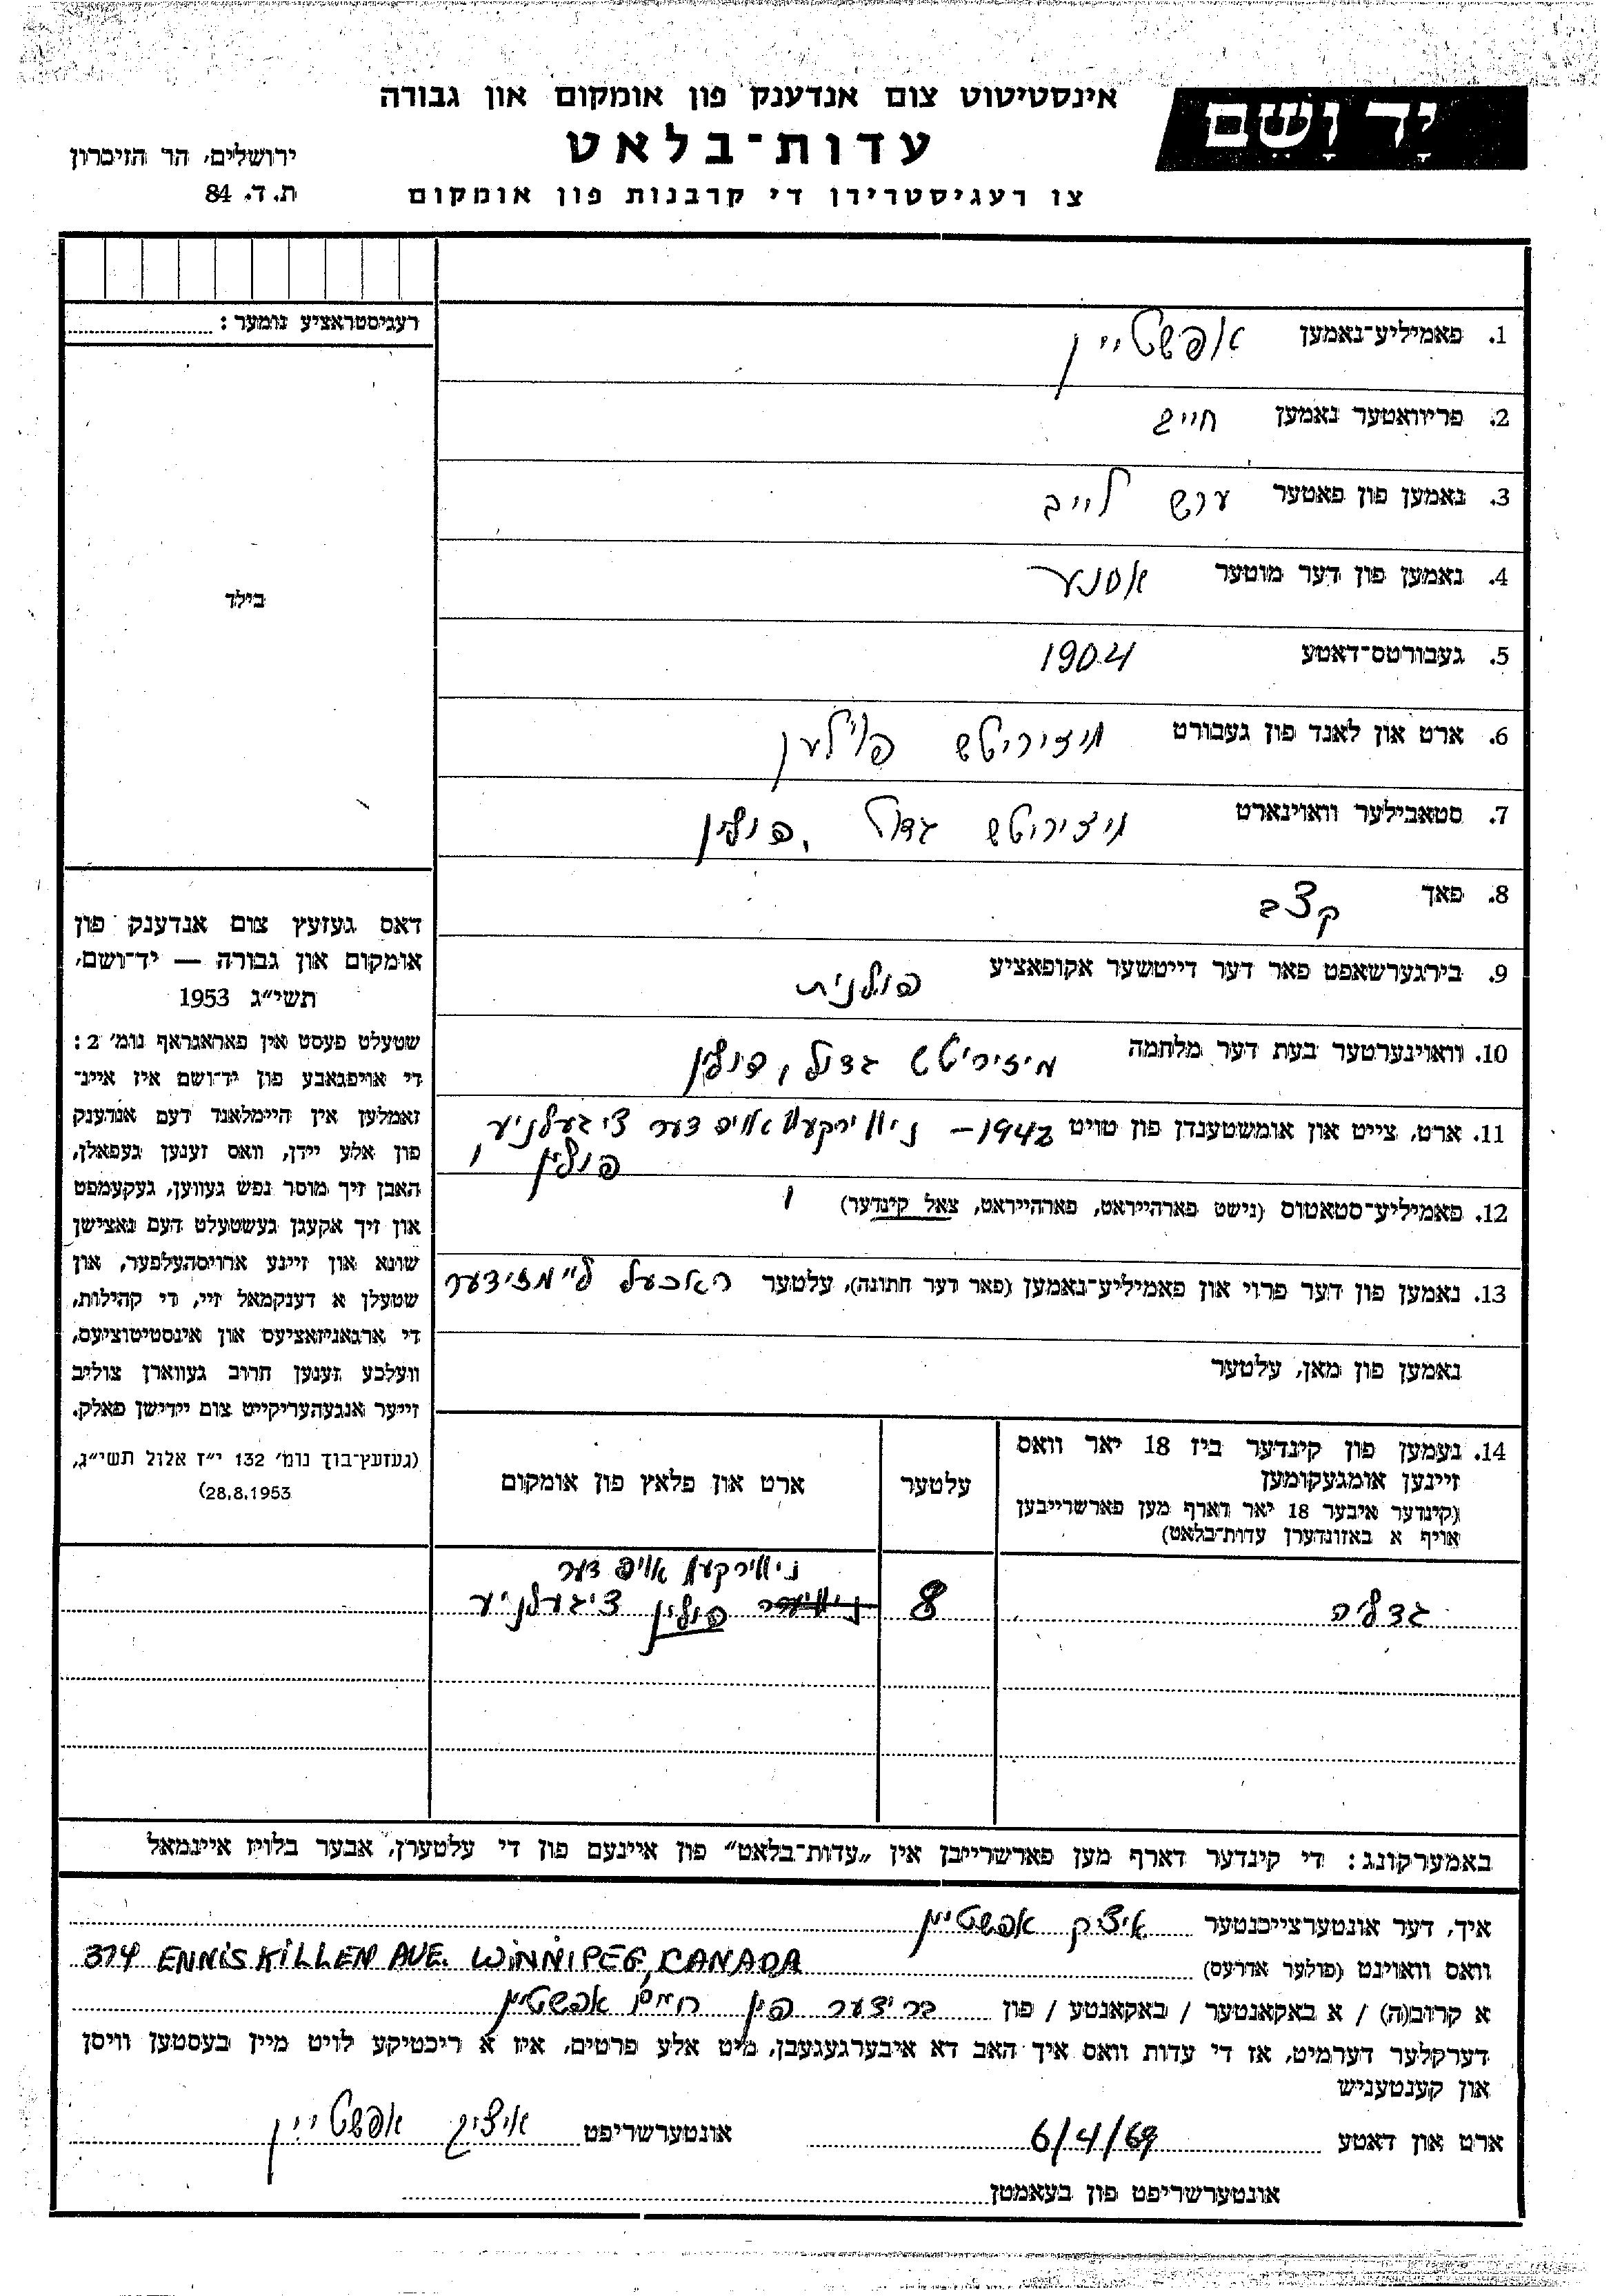 יָד וָשֵׁם
אינסטיטוט צום אנדענק פון אומקום און גבורה
עדות־בלאט
צו רעגיסטרירן די קרבנות פון אומקום
ירושלים, הר הזיכרון
ת. ד. 84
רעגיסטראציע נומער:
בילד
1. פאמיליע־נאמען אפשטיין
2. פריוואטער נאמען חיים
3. נאמען פון פאטער הרש לייב
4. נאמען פון דער מוטער אסנע
5. געבורטס־דאטע 1904
6. ארט און לאנד פון געבורט מיזיריטש פוילען
7. סטאבילער וואוינארט מיזיריטש גדול, פולין
8. פאך קצב
9. בירגערשאפט פאר דער דייטשער אקופאציע פולנית
10. וואוינערטער בעת דער מלחמה מיזיריטש גדול, פולין
11. ארט, צייט און אומשטענדן פון טויט 1942 – ניווירקעוו אויף דער ציגעלניע,
פולין
12. פאמיליע־סטאטוס (נישט פארהייראט, פארהייראט, צאל קינדער) 1
13. נאמען פון דער פרוי און פאמיליע־נאמען (פאר דער חתונה), עלטער ראכעל
נאמען פון מאן, עלטער
14. נעמען פון קינדער ביז 18 יאר וואס
זיינען אומגעקומען
(קינדער איבער 18 יאר דארף מען פארשרייבען
אויף א באזונדערן עדות־בלאט)
עלטער
ארט און פלאץ פון אומקום
גדליה
8
ניווירקעוו אויף דער
פולין ציגעלניע
דאס געזעץ צום אנדענק פון
אומקום און גבורה — יד־ושם,
תשי״ג 1953
שטעלט פעסט אין פאראגראף נומ׳ 2:
די אויפגאבע פון יד־ושם איז איינ־
זאמלען אין היימלאנד דעם אנדענק
פון אלע יידן, וואס זענען געפאלן,
האבן זיך מוסר נפש געווען, געקעמפט
און זיך אקעגן געשטעלט דעם נאצישן
שונא און זיינע ארויסהעלפער, און
שטעלן א דענקמאל זיי, די קהילות,
די ארגאניזאציעס און אינסטיטוציעס,
וועלכע זענען חרוב געווארן צוליב
זייער אנגעהעריקייט צום יידישן פאלק.
(געזעץ־בוך נומ׳ 132 י״ז אלול תשי״ג,
28.8.1953)
באמערקונג: די קינדער דארף מען פארשרייבן אין „עדות־בלאט״ פון איינעם פון די עלטערן, אבער בלויז איינמאל
איך, דער אונטערצייכנטער איציק אפשטיין
וואס וואוינט (פולער אדרעס) 374 ENNISKILLEN AVE. WINNIPEG, CANADA
א קרוב(ה) / א באקאנטער / באקאנטע / פון ברידער פון חיים אפשטיין
דערקלער דערמיט, אז די עדות וואס איך האב דא איבערגעגעבן, מיט אלע פרטים, איז א ריכטיקע לויט מיין בעסטען וויסן
און קענטעניש
ארט און דאטע 6/4/69 אונטערשריפט איציק אפשטיין
אונטערשריפט פון בעאמטן